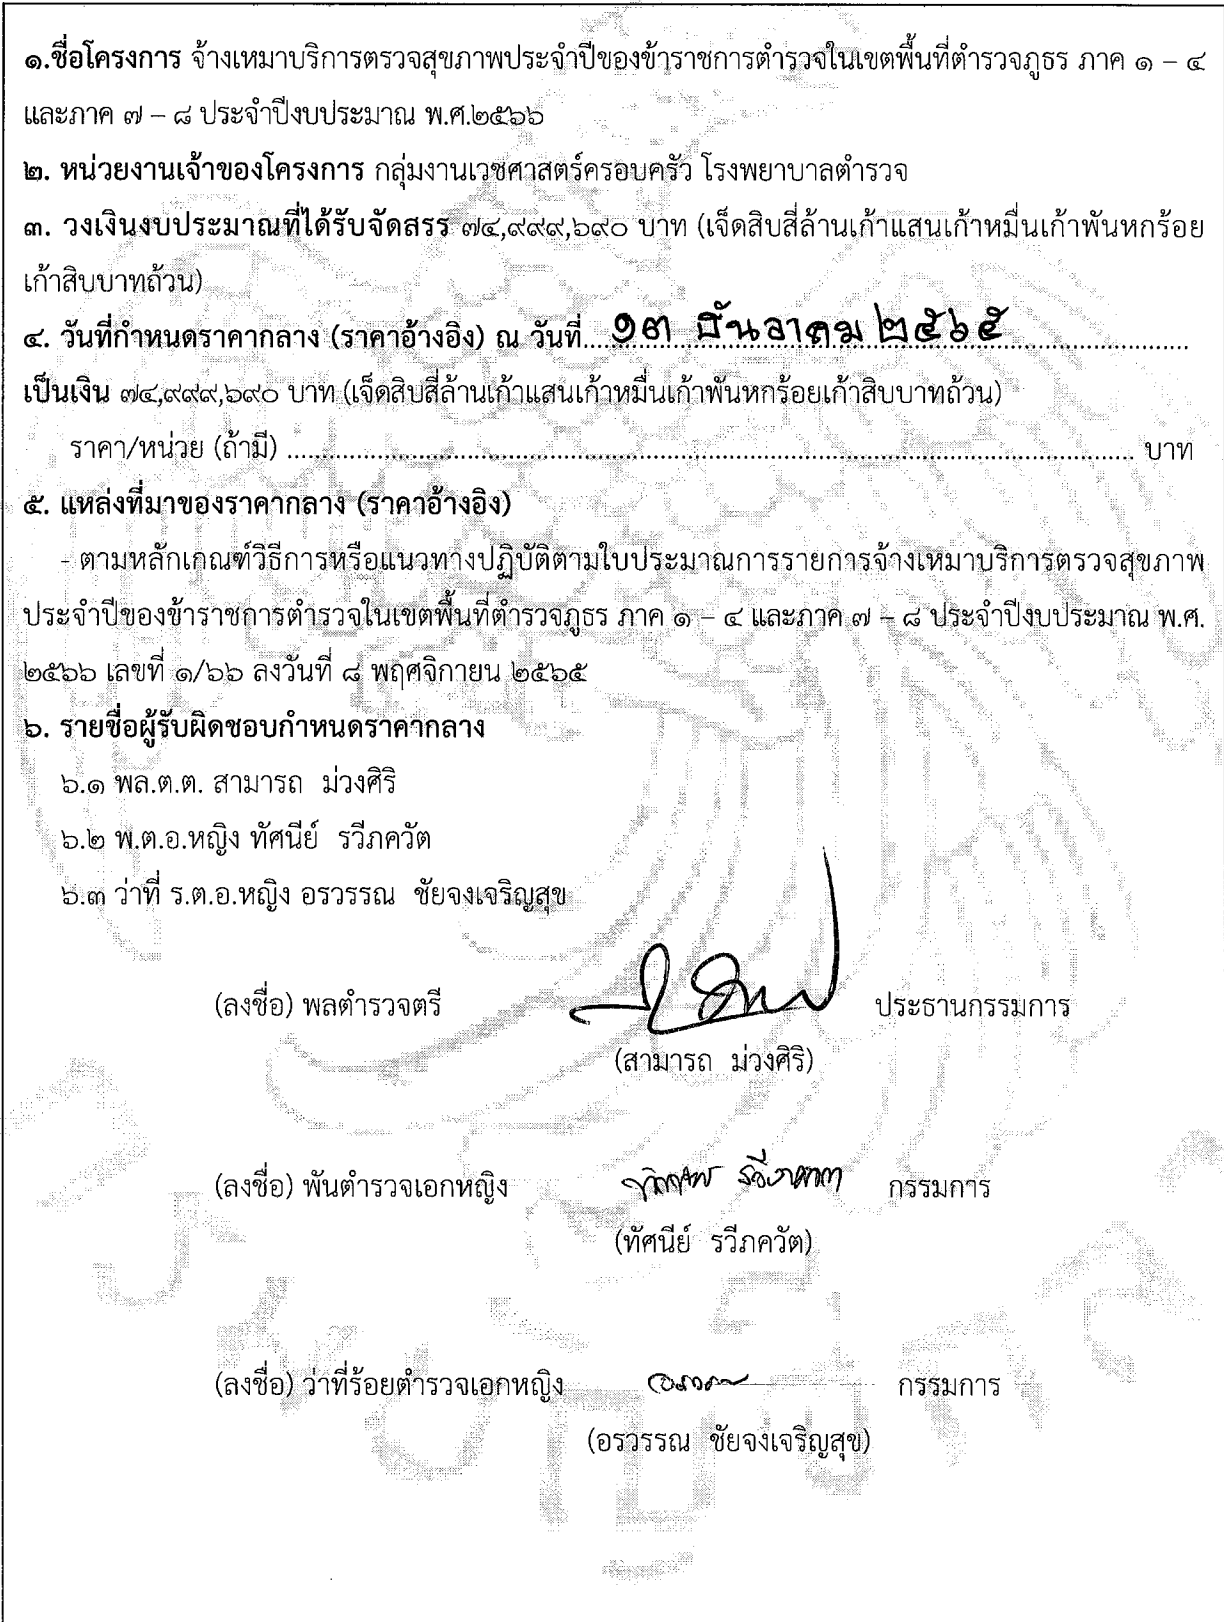 ๑.ชื่อโครงการ จ้างเหมาบริการตรวจสุขภาพประจำปีของข้าราชการตำรวจในเขตพื้นที่ตำรวจภูธร ภาค ๑ – ๔
และภาค ๗ – ๘ ประจำปีงบประมาณ พ.ศ.๒๕๖๖
๒. หน่วยงานเจ้าของโครงการ กลุ่มงานเวชศาสตร์ครอบครัว โรงพยาบาลตำรวจ
๓. วงเงินงบประมาณที่ได้รับจัดสรร ๗๔,๙๙๙,๖๙๐ บาท (เจ็ดสิบสี่ล้านเก้าแสนเก้าหมื่นเก้าพันหกร้อย
เก้าสิบบาทถ้วน)
๔. วันที่กำหนดราคากลาง (ราคาอ้างอิง) ณ วันที่ ๑๓ ธันวาคม ๒๕๖๕
เป็นเงิน ๗๔,๙๙๙,๖๙๐ บาท (เจ็ดสิบสี่ล้านเก้าแสนเก้าหมื่นเก้าพันหกร้อยเก้าสิบบาทถ้วน)
ราคา/หน่วย (ถ้ามี) .......... บาท
๕. แหล่งที่มาของราคากลาง (ราคาอ้างอิง)
- ตามหลักเกณฑ์วิธีการหรือแนวทางปฏิบัติตามใบประมาณการรายการจ้างเหมาบริการตรวจสุขภาพ
ประจำปีของข้าราชการตำรวจในเขตพื้นที่ตำรวจภูธร ภาค ๑ – ๔ และภาค ๗ – ๘ ประจำปีงบประมาณ พ.ศ.
๒๕๖๖ เลขที่ ๑/๖๖ ลงวันที่ ๘ พฤศจิกายน ๒๕๖๕
๖. รายชื่อผู้รับผิดชอบกำหนดราคากลาง
๖.๑ พล.ต.ต. สามารถ ม่วงศิริ
๖.๒ พ.ต.อ.หญิง ทัศนีย์ รวีภควัต
๖.๓ ว่าที่ ร.ต.อ.หญิง อรวรรณ ชัยจงเจริญสุข
(ลงชื่อ) พลตำรวจตรี ประธานกรรมการ
(สามารถ ม่วงศิริ)
(ลงชื่อ) พันตำรวจเอกหญิง กรรมการ
(ทัศนีย์ รวีภควัต)
(ลงชื่อ) ว่าที่ร้อยตำรวจเอกหญิง กรรมการ
(อรวรรณ ชัยจงเจริญสุข)